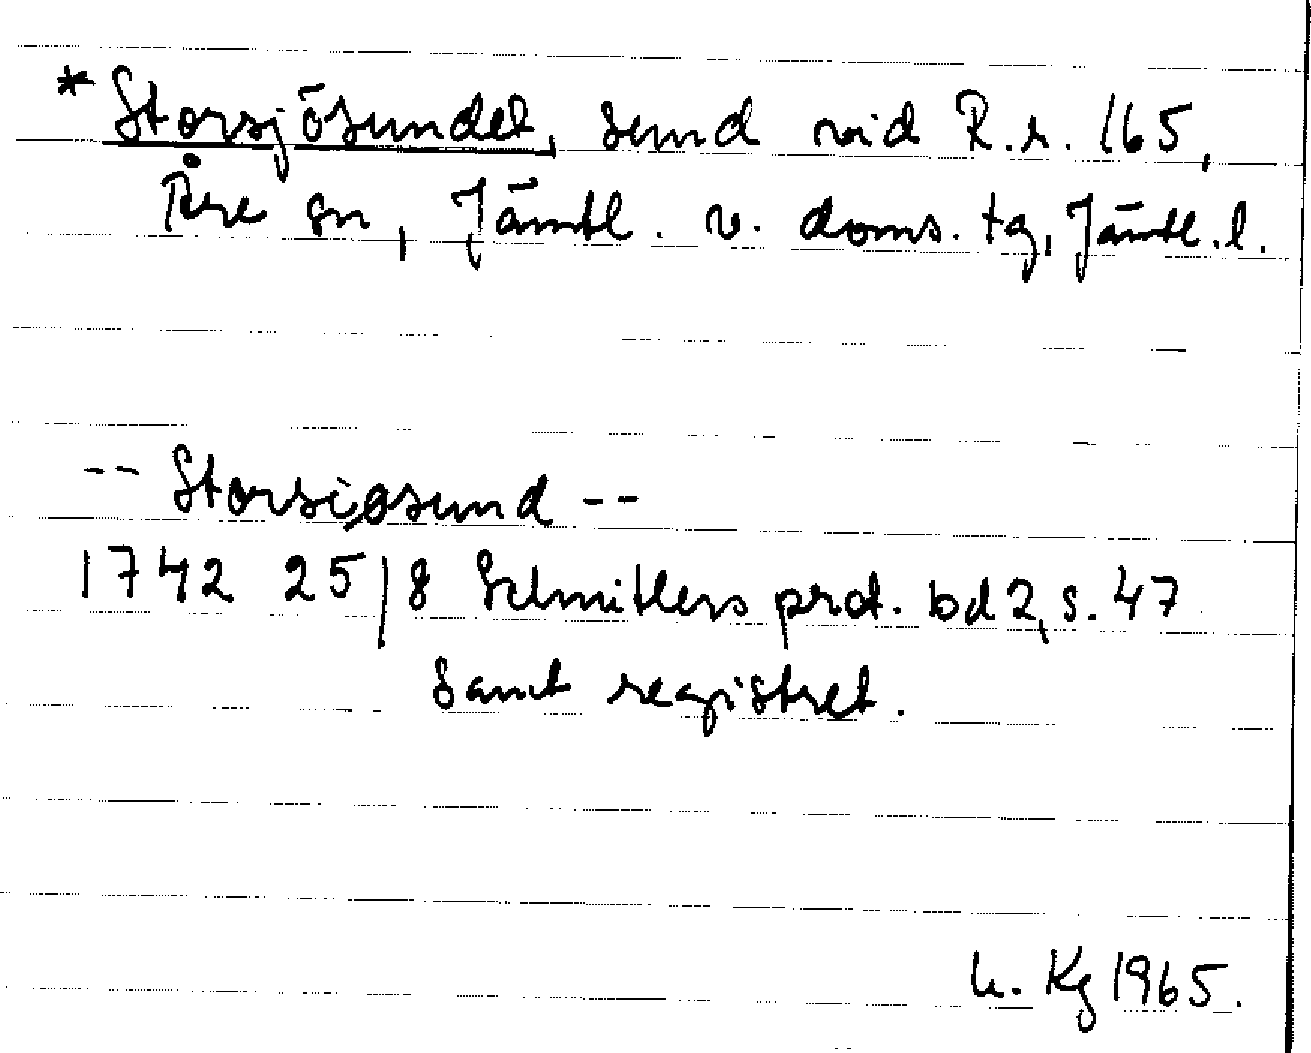 * Storsjösundet, sund vid R.r. 165,
Åre sn, Jämtl. v. doms. tg, Jämtl. l.
-- Storsiøsund --
1742 25/8 Schnitlers prot. bd 2, s. 47
samt registret.
h. Kg 1965.